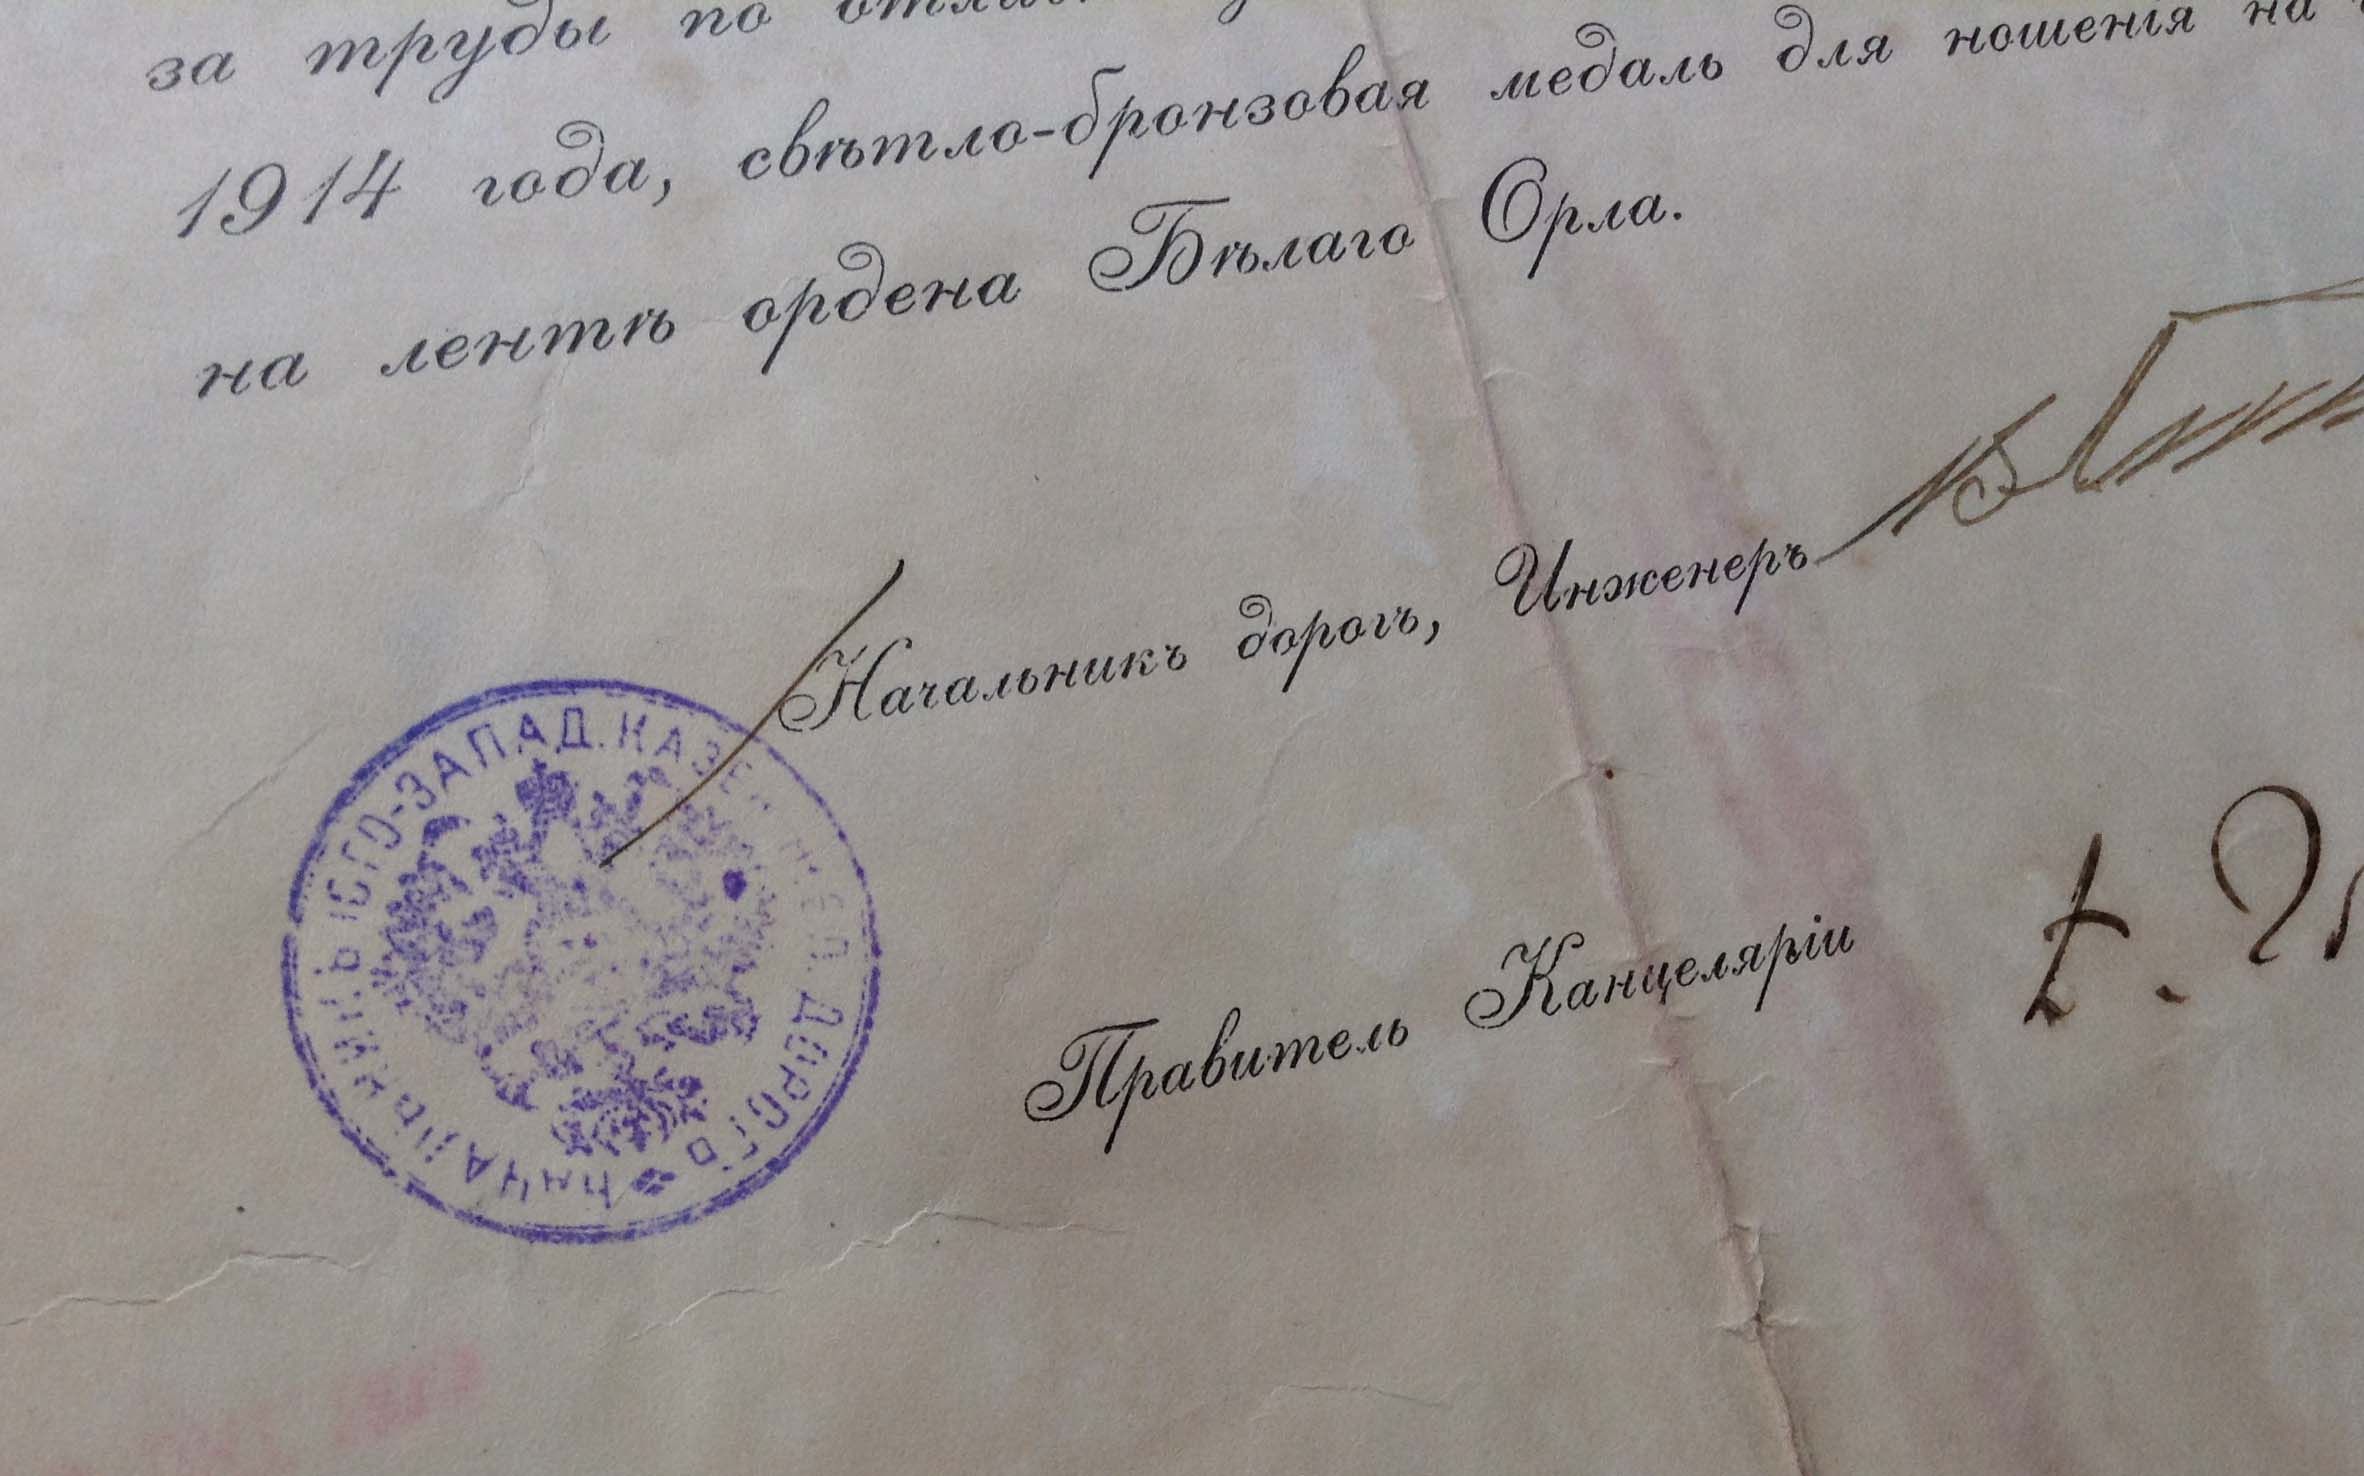 за труды по
1914 года, свѣтло-бронзовая медаль для ношенія на
на лентѣ ордена Бѣлаго Орла.
Начальникъ дорогъ, Инженеръ
Правитель Канцеляріи
НАЧАЛЬНИКЪ ЮГО-ЗАПАД. КАЗЕН. ЖЕЛ. ДОРОГЪ